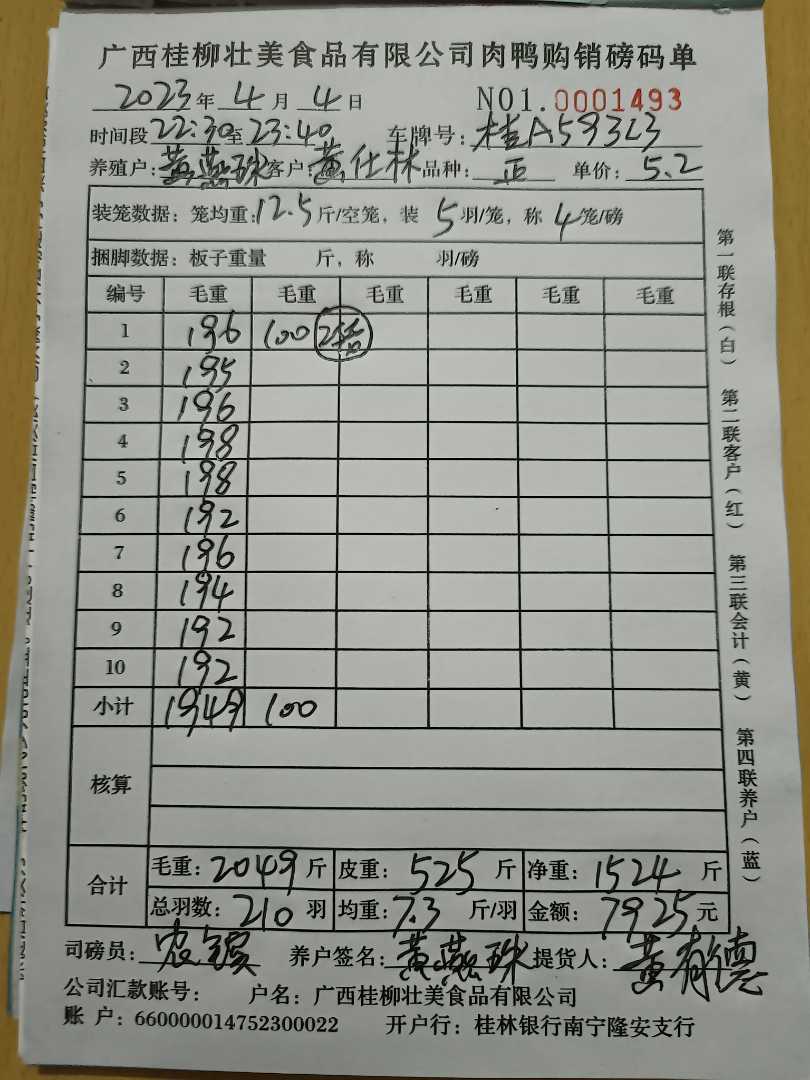 广西桂柳壮美食品有限公司肉鸭购销磅码单
2023年 4月 4日 NO1.0001493
时间段22:30至23:40 车牌号：桂A593L3
养殖户：黄燕珠 客户：黄仕林 品种：正 单价：5.2
装笼数据：笼均重：12.5斤/空笼，装 5羽/笼，称 4笼/磅
捆脚数据：板子重量 斤，称 羽/磅
编号 毛重 毛重 毛重 毛重 毛重 毛重
1 196 100
2 195
3 196
4 198
5 198
6 192
7 196
8 194
9 192
10 192
小计 1949 100
核算
合计 毛重：2049斤 皮重：525斤 净重：1524斤
总羽数：210羽 均重：7.3斤/羽 金额：7925元
司磅员： 养户签名：黄燕珠 提货人：黄有德
公司汇款账号： 户名：广西桂柳壮美食品有限公司
账 户：660000014752300022 开户行：桂林银行南宁隆安支行
第一联存根（白） 第二联客户（红） 第三联会计（黄） 第四联养户（蓝）